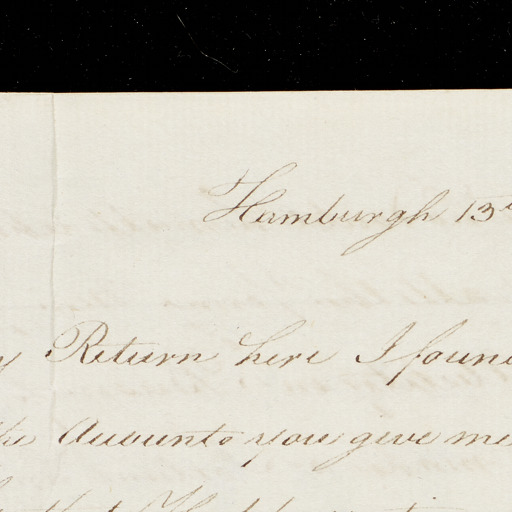 Hamburgh 13
Return here I foun
the Accounts you give me